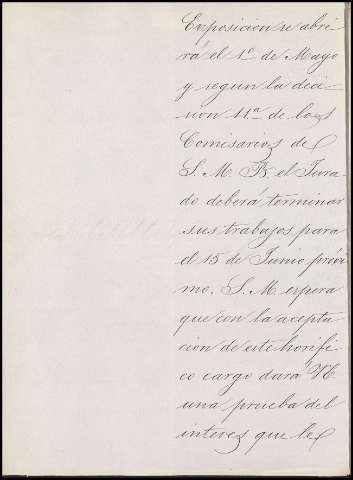 Exposicion se abri-
rá el 1º de Mayo
y segun la deci-
sion 11ª de los
Comisarios de
S. M. B. el Jura-
do deberá terminar
sus trabajos para
el 15 de Junio próxi
mo. S. M. espera
que con la acepta
cion de este horífi-
co cargo dará
una prueba del
interes que le